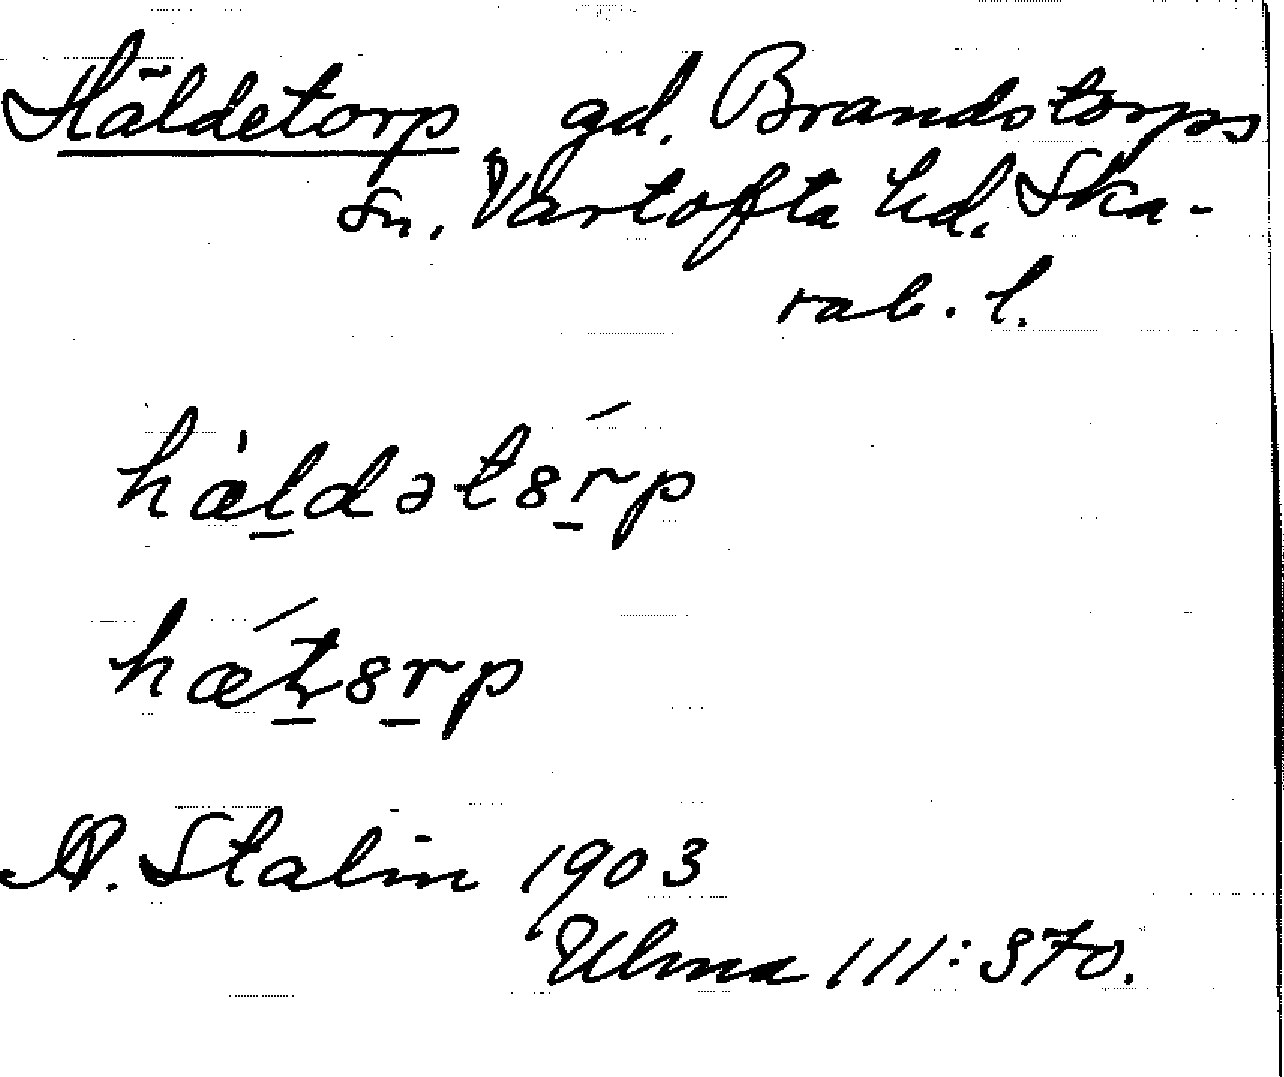 Häldetorp gd. Brandstorps
sn. Vartofta hd. Ska-
rab. l.
hæ̀l̠dətȣr̠p
hǽt̠ȣr̠p
A. Stalin 1903
Ulma 111:370.